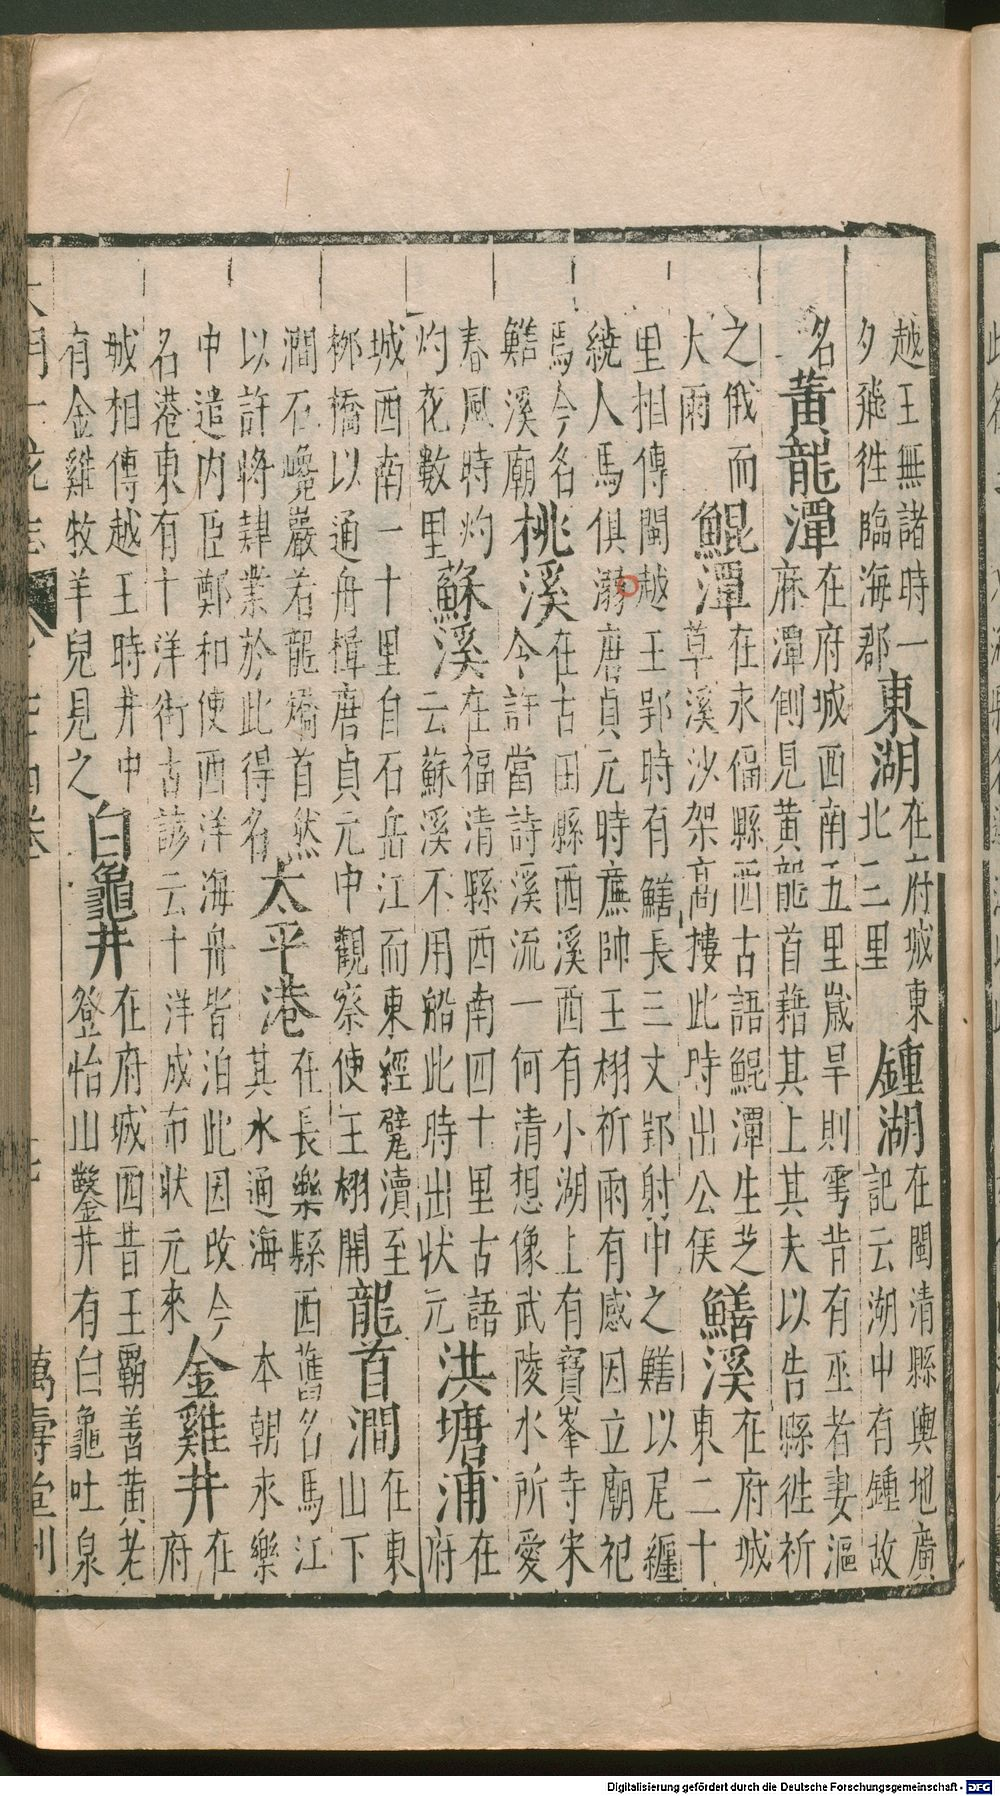 越王無諸時一夕飛徃臨海郡東湖在府城東北三里鍾湖在閩清縣輿地廣記云湖中有鍾故
名黃龍潭在府城西南五里歲旱則雩昔有巫者妻漚麻潭側見黃龍首藉其上其夫以告縣徃祈
之俄而大雨鯤潭在永偪縣西古語鯤潭生芝草溪沙架高摟此時出公侯鱔溪在府城東二十
里相傳閩越王郢時有鱔長三丈郢射中之鱔以尾纏繞人馬俱溺唐貞元時廉帥王栩祈雨有感因立廟祀
焉今名鱔溪廟桃溪在古田縣西溪西有小湖上有寶峯寺宋令許當詩溪流一何清想像武陵水所愛
春風時灼灼花數里蘇溪在福清縣西南四十里古語云蘇溪不用船此時出狀元洪塘浦在府
城西南一十里自石岳江而東經甓瀆至柳橋以通舟楫唐貞元中觀察使王栩開龍首澗在東山下
澗石巉巖若龍矯首然以許將肄業於此得名太平港在長樂縣西舊名馬江其水通海 本朝永樂
中遣內臣鄭和使西洋海舟皆泊此因改今名港東有十洋街古諺云十洋成市狀元來金雞井在府
城相傳越王時井中有金雞牧羊兒見之白龜井在府城西昔王霸善黃老登怡山鑿井有白龜吐泉
大明一統志 萬壽堂刊
Digitalisierung gefördert durch die Deutsche Forschungsgemeinschaft - DFG